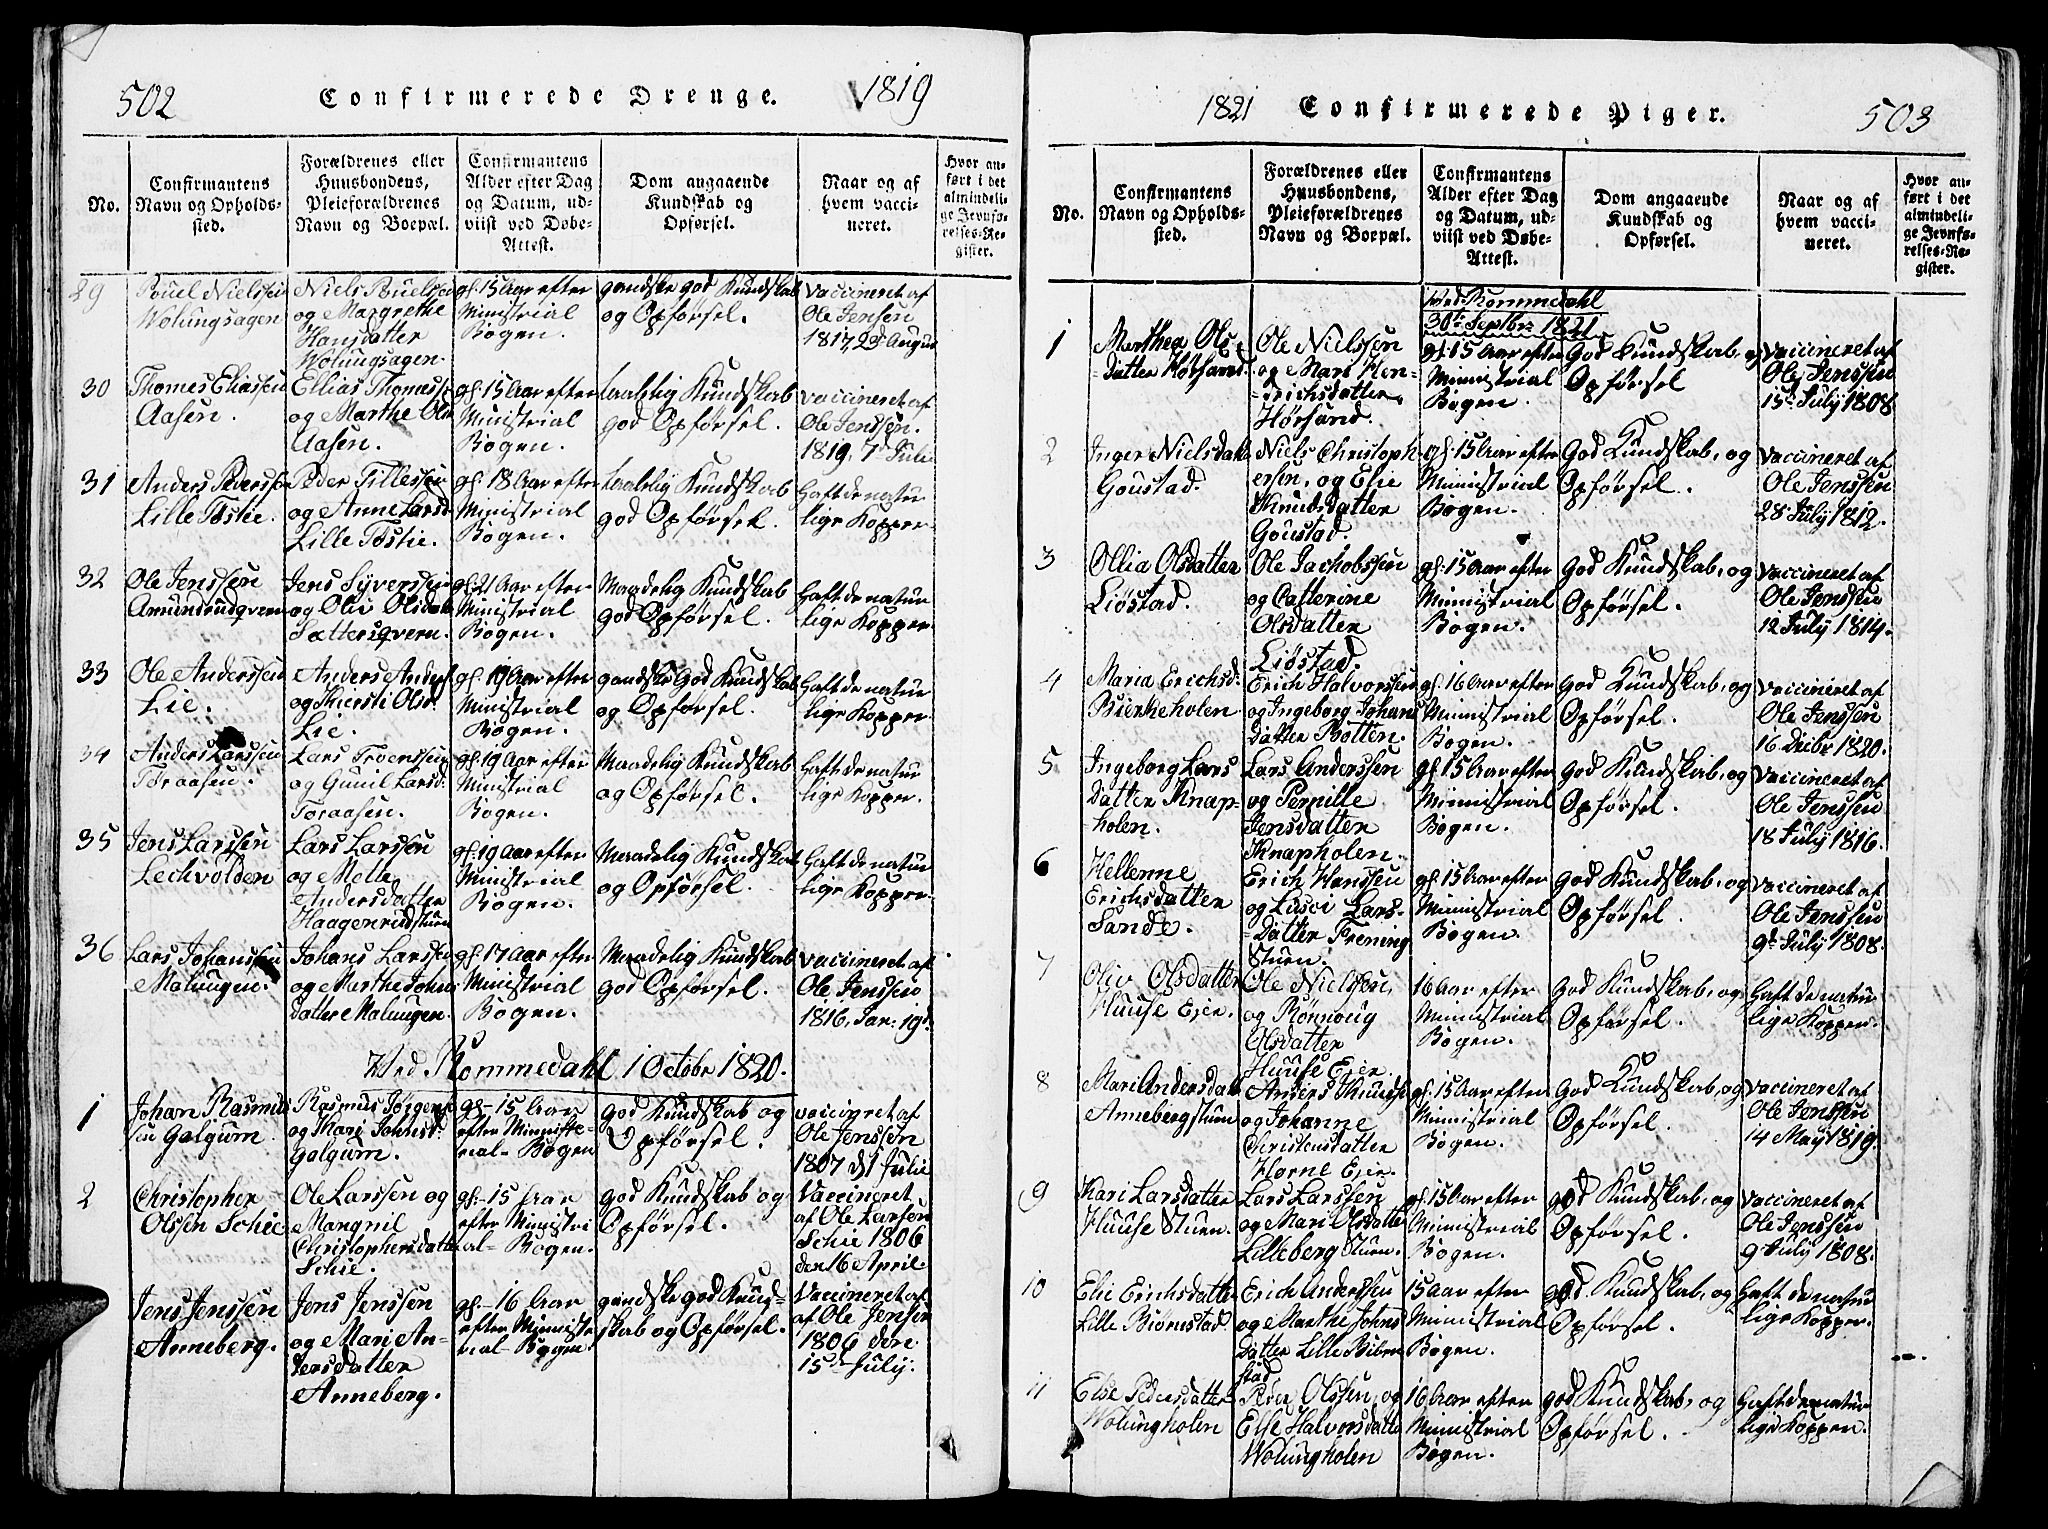 502
Confirmerede Drenge.
1819
No.
Confirmantens
Navn og Opholds-
sted.
Forældrenes eller
Huusbondens,
Pleieforældrenes
Navn og Boepæl.
Confirmantens
Alder efter Dag
og Datum, ud-
viist ved Døbe-
Attest.
Dom angaaende
Kundskab og
Opførsel.
Naar og af
hvem vacci-
neret.
Hvor an-
ført i det
almindeli-
ge Jevnfø-
relses-Re-
gister.
29
Pouel Nielssen
Wolungsagen
Niels Pouelsen
og Margrethe
Hansdatter
Wolungsagen.
gl. 15 Aar efter
Ministrial
Bogen.
gandske god Kundskab
og Opførsel.
Vaccineret af
Ole Jensen
1817, 23 August
30
Thomas Eliassen
Aasen.
Ellias Thomass
og Marthe Ols
Aasen.
gl. 15 Aar efter
Ministrial
Bogen.
taalelig Kundskab
god Opførsel.
vaccineret af
Ole Jenssen.
1819, 7 Julii
31
Anders Pederssen
Lille Tøstie.
Peder Tillessen
og Anne Larsd
Lille Tøstie.
gl. 18 Aar efter
Ministrial
Bogen.
taalelig Kundskab
god Opførsel.
Haft de natur
lige Kopper.
32
Ole Jenssen
Amundrudqvern
Jens Syverssen
og Oliv Olsdat
Sættersqvern.
gl. 21 Aar efter
Ministrial
Bogen.
Maadelig Kundskab
god Opførsel.
Haft de natur
lige Kopper.
33
Ole Anderssen
Lie.
Anders Anders
og Kiersti Olsd.
Lie.
gl. 19 Aar efter
Ministrial
Bogen.
gandske God Kundskab
og Opførsel.
Haft de natur
lige Kopper.
34
Anders Larssen
Toraasen.
Lars Troenssen
og Gunil Larsd.
Toraasen.
gl. 19 Aar efter
Ministrial
Bogen.
Maadelig Kundskab
og Opførsel.
Haft de natur
lige Kopper.
35
Jens Larssen
Lechvolden
Lars Larssen
og Mette
Andersdatter
Haagenrudstuen
gl. 19 Aar efter
Ministrial
Bogen.
Maadelig Kundskab
og Opførsel.
Haft de natur
lige Kopper.
36
Lars Johanssen
Malungen.
Johans Larssen
og Marthe Johns
datter Malungen.
gl. 17 Aar efter
Ministrial
Bogen.
Maadelig Kundskab
god Opførsel.
vaccineret af
Ole Jenssen
1816, Jan: 19d.
Ved Rommedahl 1 Octobr 1820.
1
Johan Rasmus
en Galgum.
Rasmus Jørgens
og Mari Johnsd:
Galgum.
gl. 15 Aar
efter Ministe-
rial-Bogen
God Kundskab og
Opførsel.
vaccineret af
Ole Jenssen
1807 d 1 Julii
2
Christopher
Olsen Schie
Ole Larssen og
Mangnil
Christophersdatter
Schie.
gl. 15 Aar
efter Ministri
al-Bogen.
God Kundskab og
Opførsel.
Vaccineret
af Ole Larsen
Schie 1806
den 16 April.
Jens Jenssen
Anneberg.
Jens Jenssen
og Mari An-
dersdatter
Anneberg.
gl. 16 Aar
efter Ministe
rial-Bogen
gandske god Kund-
skab og Opførsel.
Vaccineret af
af Ole Jensen
1806 den
15d July.
1821
Confirmerede Piger.
503
No.
Confirmantens
Navn og Opholds-
sted.
Forældrenes eller
Huusbondens,
Pleieforældrenes
Navn og Boepæl.
Confirmantens
Alder efter Dag
og Datum, ud-
viist ved Døbe-
Attest.
Dom angaaende
Kundskab og
Opførsel.
Naar og af
hvem vacci-
neret.
Hvor an-
ført i det
almindeli-
ge Jevnfø-
relses-Re-
gister.
Ved Rommedahl
30te Septbr 1821.
1
Marthea Ols
datter Hørsand
Ole Nielssen
og Mari Hen-
drichsdatter
Hørsand.
gl. 15 Aar efter
Ministrial
Bogen.
God Kundskab, og
Opførsel
vaccineret af
Ole Jenssen
15de July 1808
2
Inger Nielsdat
Goustad.
Niels Christoph
ersen, og Elie
Knudsdatter
Goustad.
gl. 15 Aar efter
Ministrial
Bogen.
God Kundskab, og
Opførsel.
vaccineret af
Ole Jenssen
28 July 1812.
3
Ollia Olsdatter
Liøstad.
Ole Jachobssen
og Catterine
Olsdatter
Liøstad.
gl. 15 Aar efter
Ministrial
Bogen.
God Kundskab, og
Opførsel.
vaccineret af
Ole Jenssen
12 July 1814.
4
Maria Erichsd:
Bierkeholen.
Erich Halvorssen
og Ingeborg Johans
datter Botten.
gl. 16 Aar efter
Ministrial
Bogen.
God Kundskab, og
Opførsel.
vaccineret af
Ole Jenssen
16 Decbr 1820.
5
Ingeborg Lars
datter Knap-
holen.
Lars Anderssen
og Pernille
Jensdatter
Knapholen.
gl. 15 Aar efter
Ministrial
Bogen.
God Kundskab, og
Opførsel.
vaccineret af
Ole Jenssen
18 July 1816.
6
Hellenne
Erichsdatter
Sande.
Erich Hanssen
og Lusci Lars-
datter Frening
Stuen.
gl. 15 Aar efter
Ministrial
Bogen.
God Kundskab, og
Opførsel.
vaccineret af
Ole Jenssen
9de July 1808.
7
Oliv Olsdatter
Huuse Ejer.
Ole Nielssen,
og Rønnoug
Olsdatter
Huuse Ejer.
16 Aar efter
Ministrial
Bogen.
God Kundskab, og
Opførsel.
Haft de natur
lige Kopper.
8
Mari Andersdat
Anneberg stuen
Anders Knuds
og Johanne
Christensdatter
Horne Ejer.
gl. 15 Aar efter
Ministrial
Bogen.
God Kundskab, og
Opførsel.
vaccineret af
Ole Jenssen
14 May 1819.
9
Kari Larsdatter
Huuse Stuen.
Lars Larssen
og Mari Olsdatter
Lilleberg Stuen.
gl. 15 Aar efter
Ministrial
Bogen.
god Kundskab, og
Opførsel.
vaccineret af
Ole Jenssen
9 July 1808.
10
Elie Erichsdatter
Lille Biørnstad.
Erich Anderssen
og Marthe Johns
datter Lille Biørn
stad
15 Aar efter
Ministrial
Bogen.
god Kundskab, og
Opførsel.
Haft de natur
lige Kopper.
11
Else Pedersdatter
Wolungholen
Peder Olssen, og
Else Halvorsdatter
Wolungholen
16 Aar efter
Ministrial
Bogen.
god Kundskab, og
Opførsel.
Haft de natur
lige Koppen.